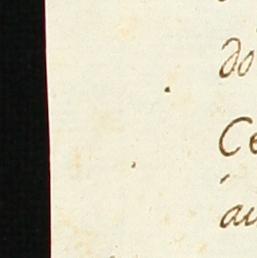 do
Ce
au